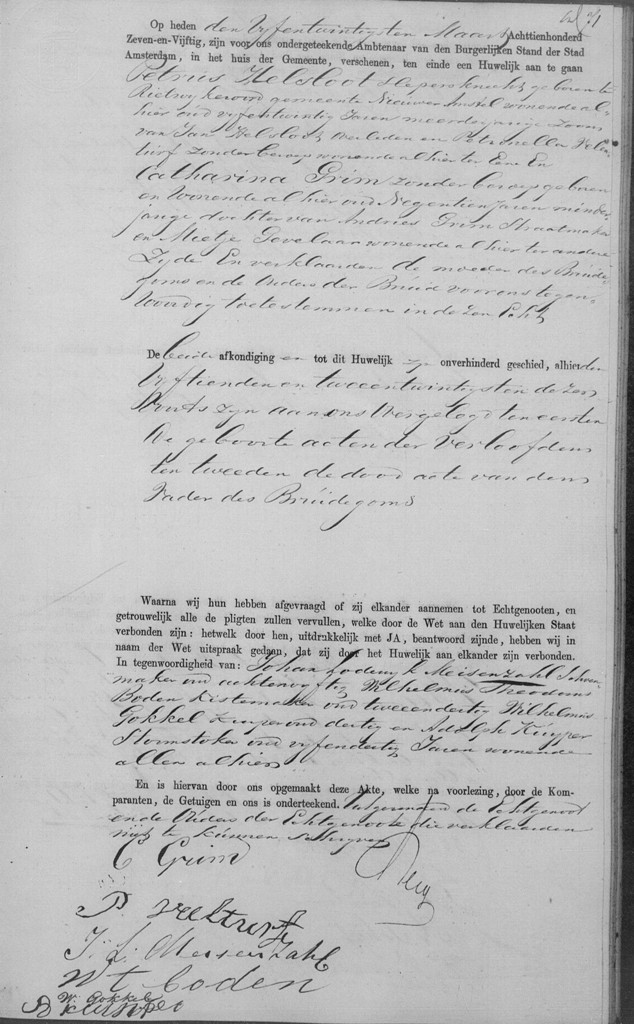 Op heden den Vyfentwintigsten Maart Achttienhonderd
Zeven-en-Vijftig, zijn voor ons ondergeteekende Ambtenaar van den Burgerlijken Stand der Stad
Amsterdam, in het huis der Gemeente, verschenen, ten einde een Huwelijk aan te gaan
Petrus Helsloot sleepersknecht geboren te
Rietwykeroord gemeente Nieuwer Amstel wonende al-
hier oud vyfentwintig Jaren meerderjarige zoon
van Jan Helsloot overleden en Petronella Velt
turf zonder beroep wonende alhier ter Ene En
Catharina Grim zonder beroep geboren
en Wonende alhier oud Negentien Jaren minder
jarige dochter van Andries Grim Straatmaker
en Meetje Gevelaar wonende alhier ter andere
Zyde En verklaarden de moeder des Bruide
goms en de Ouders der Bruid voor ons tegen-
woordig toetestemmen in dezen Echt
De beide afkondiging en tot dit Huwelijk zyn onverhinderd geschied, alhier den
Vyftienden en tweeentwintigsten dezer
Voorts zyn aan ons Overgelegd ten eersten
De geboorte acten der Verloofden
ten tweeden de dood acte van den
Vader des Bruidegoms
Waarna wij hun hebben afgevraagd of zij elkander aannemen tot Echtgenooten, en
getrouwelijk alle de pligten zullen vervullen, welke door de Wet aan den Huwelijken Staat
verbonden zijn: hetwelk door hen, uitdrukkelijk met JA, beantwoord zijnde, hebben wij in
naam der Wet uitspraak gedaan, dat zij door het Huwelijk aan elkander zijn verbonden.
In tegenwoordigheid van: Johan Lodewyk Meisenzahl Schoen
maker oud achtenvyftig Wilhelmus Theodorus
Boden Kistemaker oud tweeendertig Wilhelmus
Gokkel Kuyper oud dertig en Adolph Kuyper
Stoomstoker oud vyfendertig Jaren wonende
allen alhier
En is hiervan door ons opgemaakt deze Akte, welke na voorlezing, door de Kom-
paranten, de Getuigen en ons is onderteekend. Uitgezonderd de Echtgenoot
en de Ouders der Echtgenoote die verklaarden
niet te kunnen schryven
C Grim
P veelturf
J: L: Meisenzahl
W t boden
W: Gokkel
A kuiper